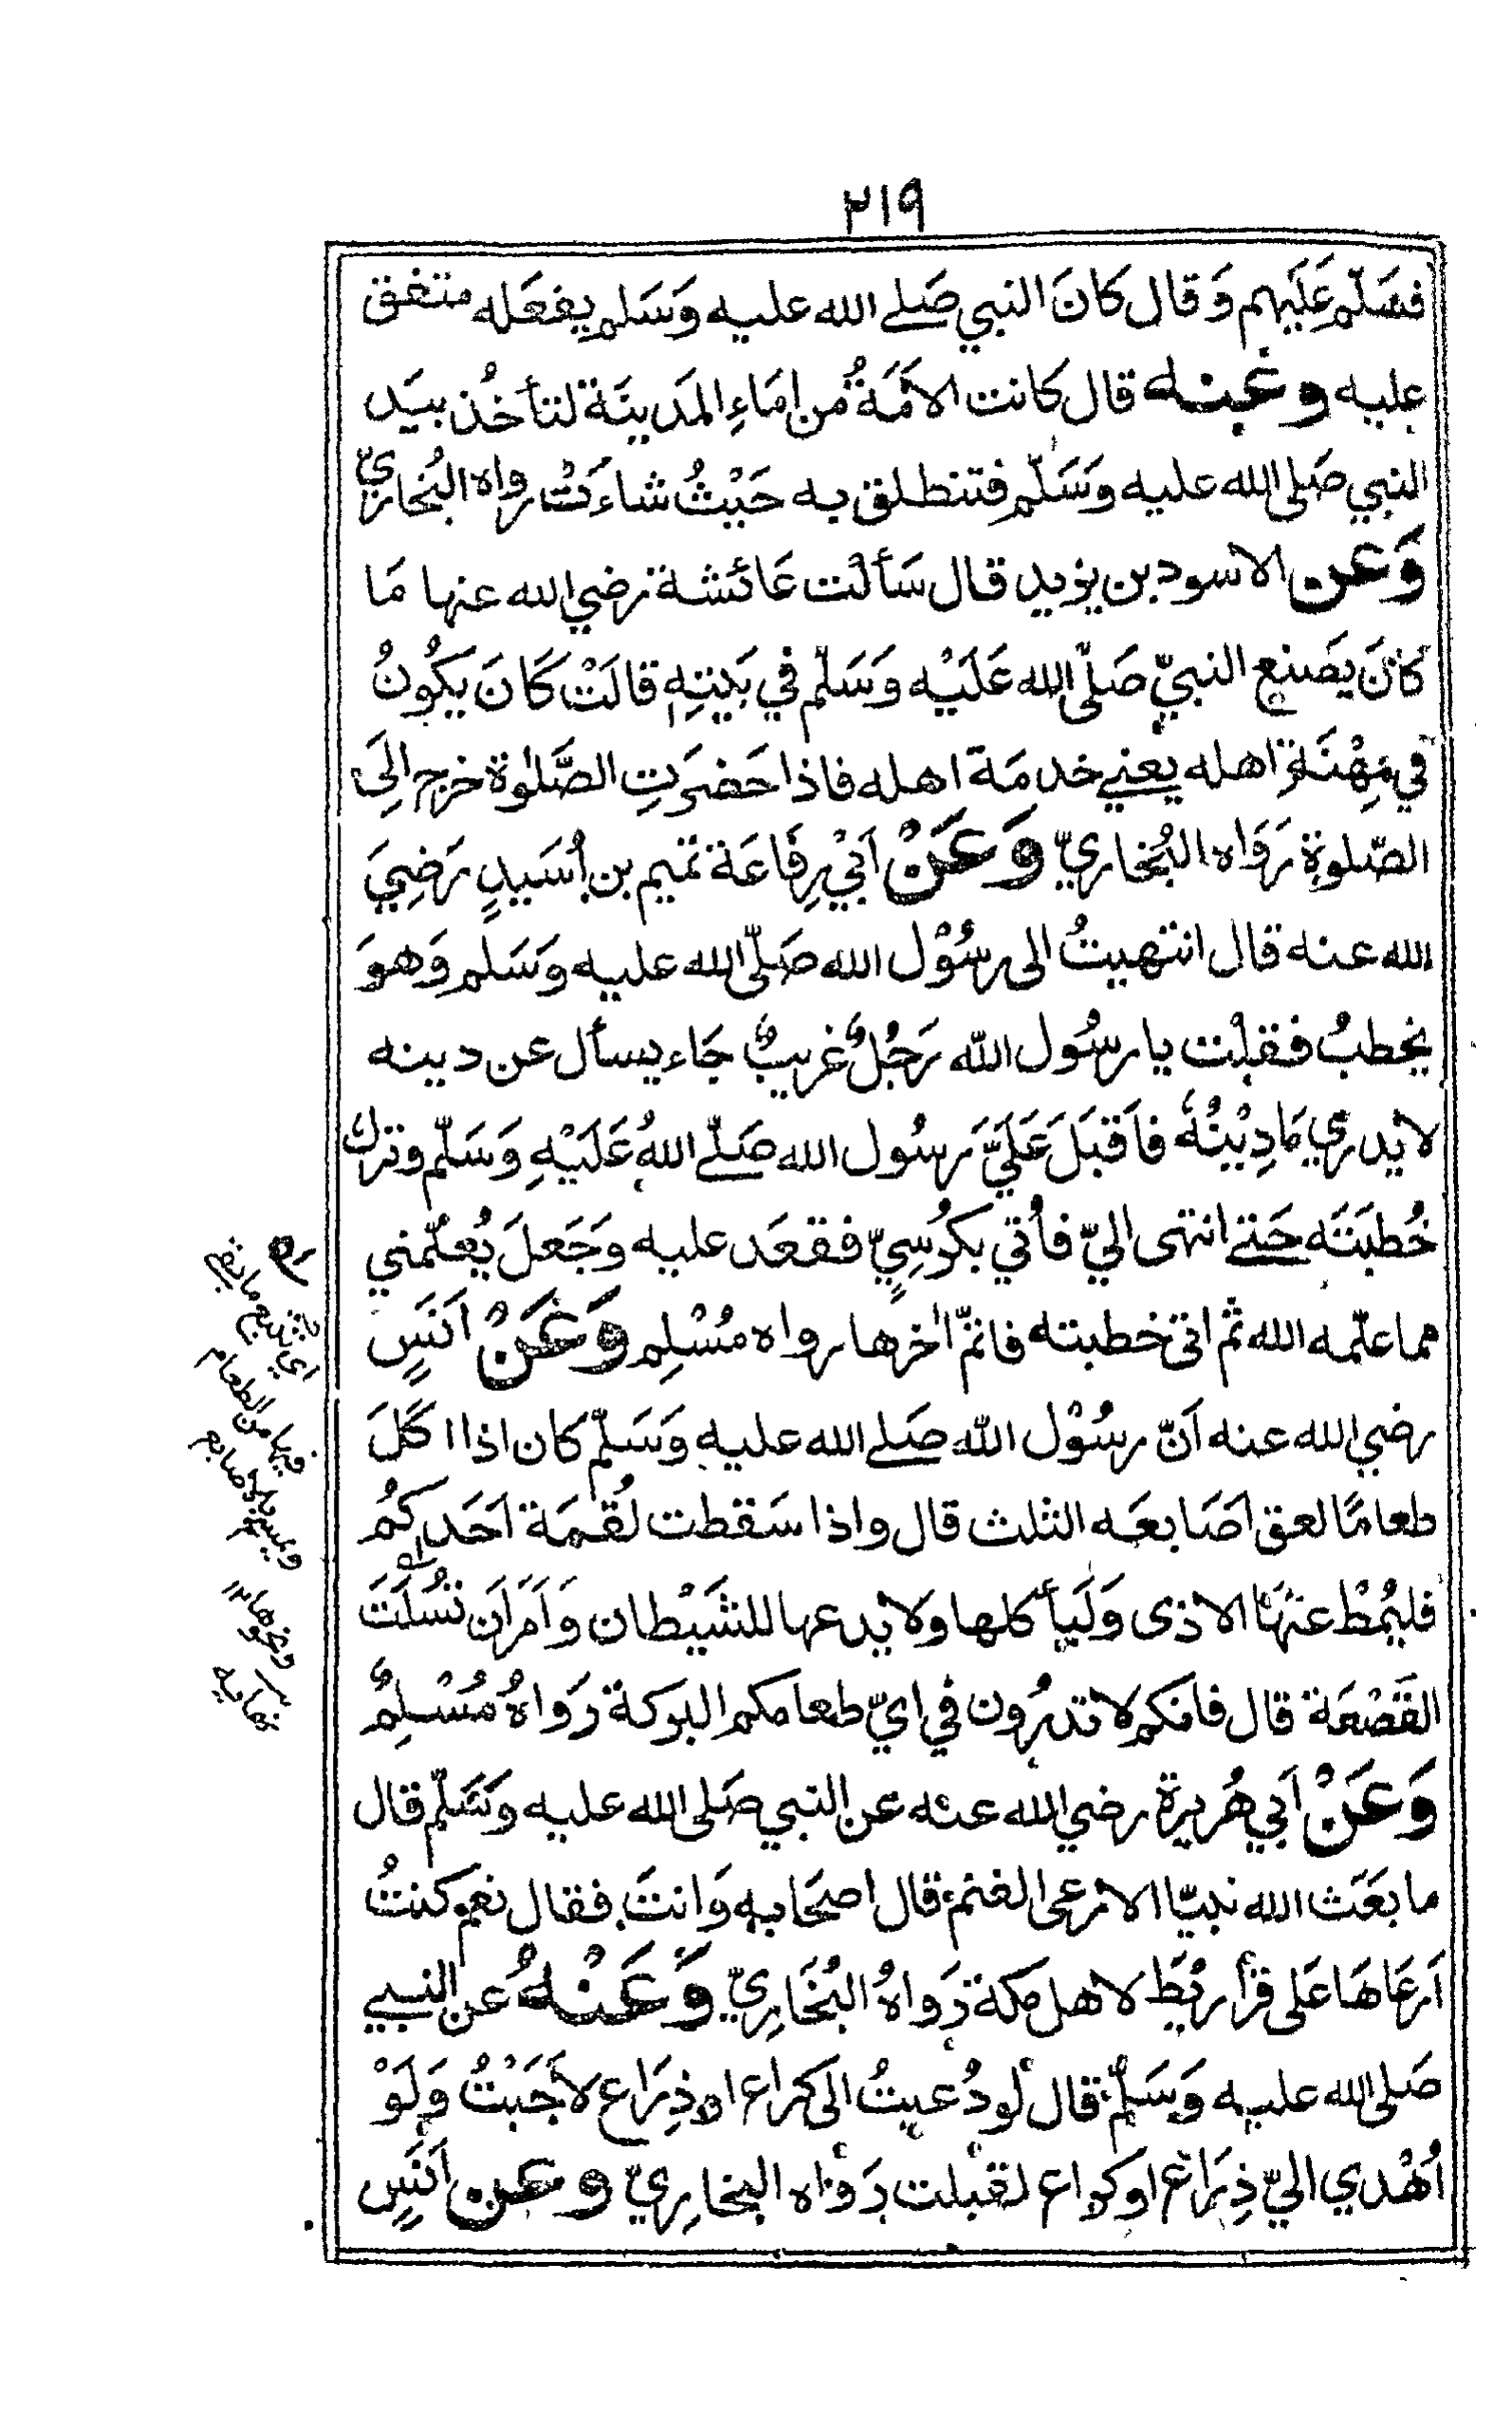 ٢١٩
فسَلّم عَلَيهم وَقال كانَ النبي صَلے الله عليه وَسَلم يفعَله متفق
عليه وعنه قال كانت الاَمَةُ من اِمَاءِ المَدينَة لتأخُذ بيَد
النبي صَلى الله عليه وَسَلّم فتنطلق به حَيْثُ شاءَتْ رواه البُخاريّ
وَعن الاسود بن يزيد قال سَألْت عَائشة رضي الله عنها مَا
كانَ يَصَنع النبيّ صَلّى الله عَلَيْه وَسَلّم في بَيتِهِ قالَتْ كَانَ يكُونُ
في مِهْنَةِ اهله يعنے خدمَة اهله فاذا حَضرَتِ الصَّلٰوة خرج الىَ
الصّلوةِ رَوَاه البُخاريّ وَعَنْ اَبْي رِفَاعَة تمَيم بن اُسَيدٍ رَضِيَ
الله عنه قال انتهيتُ الى رسُوْل الله صَلّى الله عليه وَسَلم وَهوَ
يخطبُ فقلْت يا رسُول الله رَجُلٌ غريبٌ جَاء يسأل عن دينه
لا يدري مَا دِيْنُهُ فاَقبَلَ عَلَيَّ رَسُول الله صَلّے اللهُ عَلَيْهِ وَسَلّم وترك
خُطبَتَه حَتے انتهى اليّ فاُتي بكُرسِيٍّ فقعَد عليه وَجَعلَ يُعلّمني
مما علّمه الله ثم اتى خطبته فاتمّ اٰخرها رواه مُسْلِم وَعَنْ اَنَسٍ
رضي الله عنه اَنّ رسُوْل الله صَلے الله عليه وَسَلّم كان اذا اكَلَ
طعامًا لعق اَصَابعَه الثلث قال واذا سَقطت لُقمَة اَحَدكمُ
فليُمطْ عنهَا الاذى وَلَيأكلها ولا يدعها للشَيْطان وَاَمَر اَن تُسْلَتَ
القَصْعَة قال فانكم لا تدرُون في ايّ طعامكم البركة رَواهُ مُسْلِمٌ
وَعَنْ اَبي هُريرة رضي الله عنه عن النبي صَلى الله عليه وَسَلّم قال
ما بعَث الله نبيّا الا رعى الغنم قال اصحَابه وَانتَ فقال نعم كنتُ
اَرعَاهَا عَلى قرأريْط لاهل مكة رَواهُ البُخَارِيّ وَعَنْهُ عن النبي
صَلى الله عليه وَسَلّم قال لو دُعيتُ الى كراع او ذِرَاع لأجَبْتُ وَلَوْ
اُهْدي اليّ ذِرَاع او كراع لقبلت رَوَاه البخارِيّ وعن اَنَسٍ
اي نتتبع ما بقي
فيها من الطعام
ونمسحها بالاصابع
ونحوها ١٢
نهاية